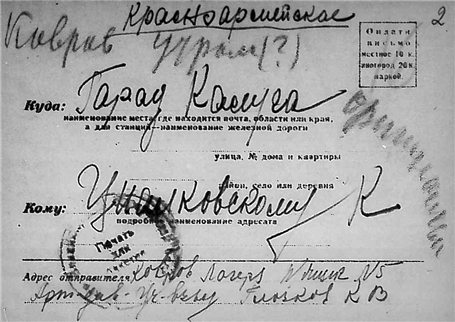 Красноармейское
2
Ковров Угром(?)
Оплати
письмо
местное 10 к.
иногород 20 к.
маркой.
Куда: Город Калуга
наименование места, где находится почта, области или края,
а для станции—наименование железной дороги
улица, № дома и квартиры
район, село или деревня
Кому: Циолковскому К
подробное наименование адресата
Печать
для
пакетов
Адрес отправителя: Ковров Лагерь Ящик №5
Клочков К В